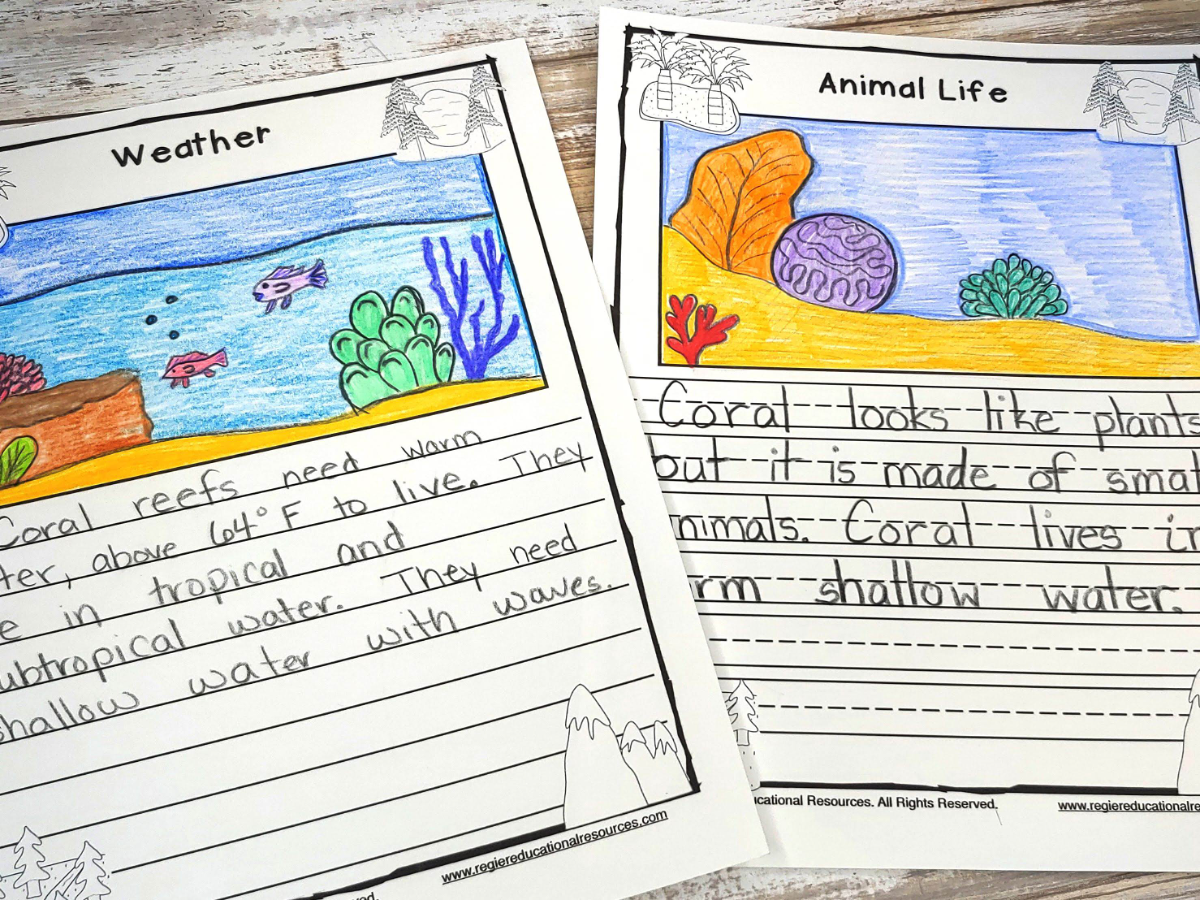 Weather
Coral reefs need warm
ter, above 64° F to live. They
e in tropical and
ubtropical water. They need
shallow water with waves.
www.regiereducationalresources.com
Animal Life
Coral looks like plants
but it is made of smal
nimals. Coral lives in
rm shallow water.
ucational Resources. All Rights Reserved.
www.regiereducationalre